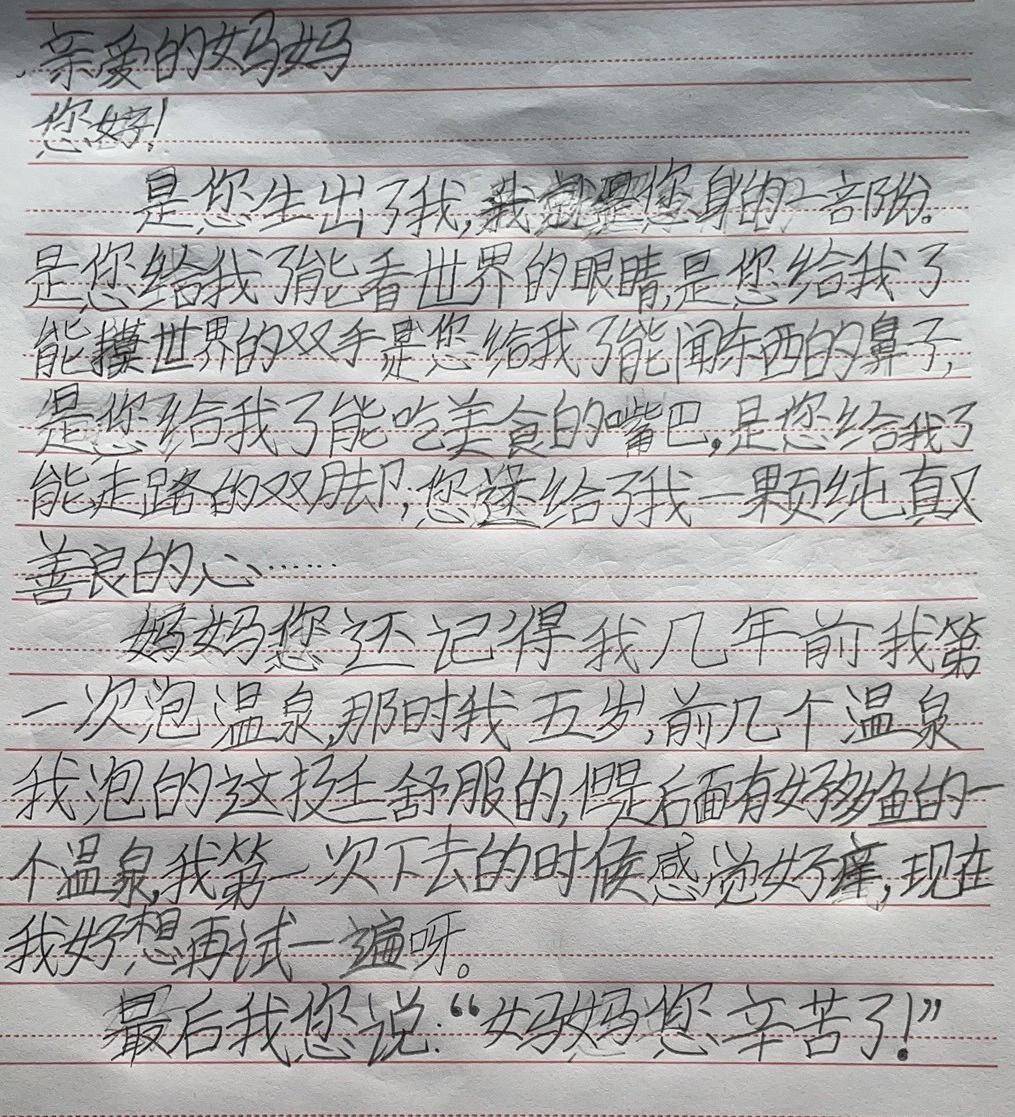 亲爱的妈妈
您好!
是您生出了我,我就是您身的一部份。
是您给我了能看世界的眼睛,是您给我了
能摸世界的双手是您给我了能闻东西的鼻子,
是您给我了能吃美食的嘴巴,是您给我了
能走路的双脚,您还给了我一颗纯真又
善良的心……
妈妈您还记得我几年前我第
一次泡温泉,那时我五岁,前几个温泉
我泡的这挺舒服的,但是后面有好多鱼的一
个温泉,我第一次下去的时候感觉好痒,现在
我好想再试一遍呀。
最后我您说:“妈妈您辛苦了!”